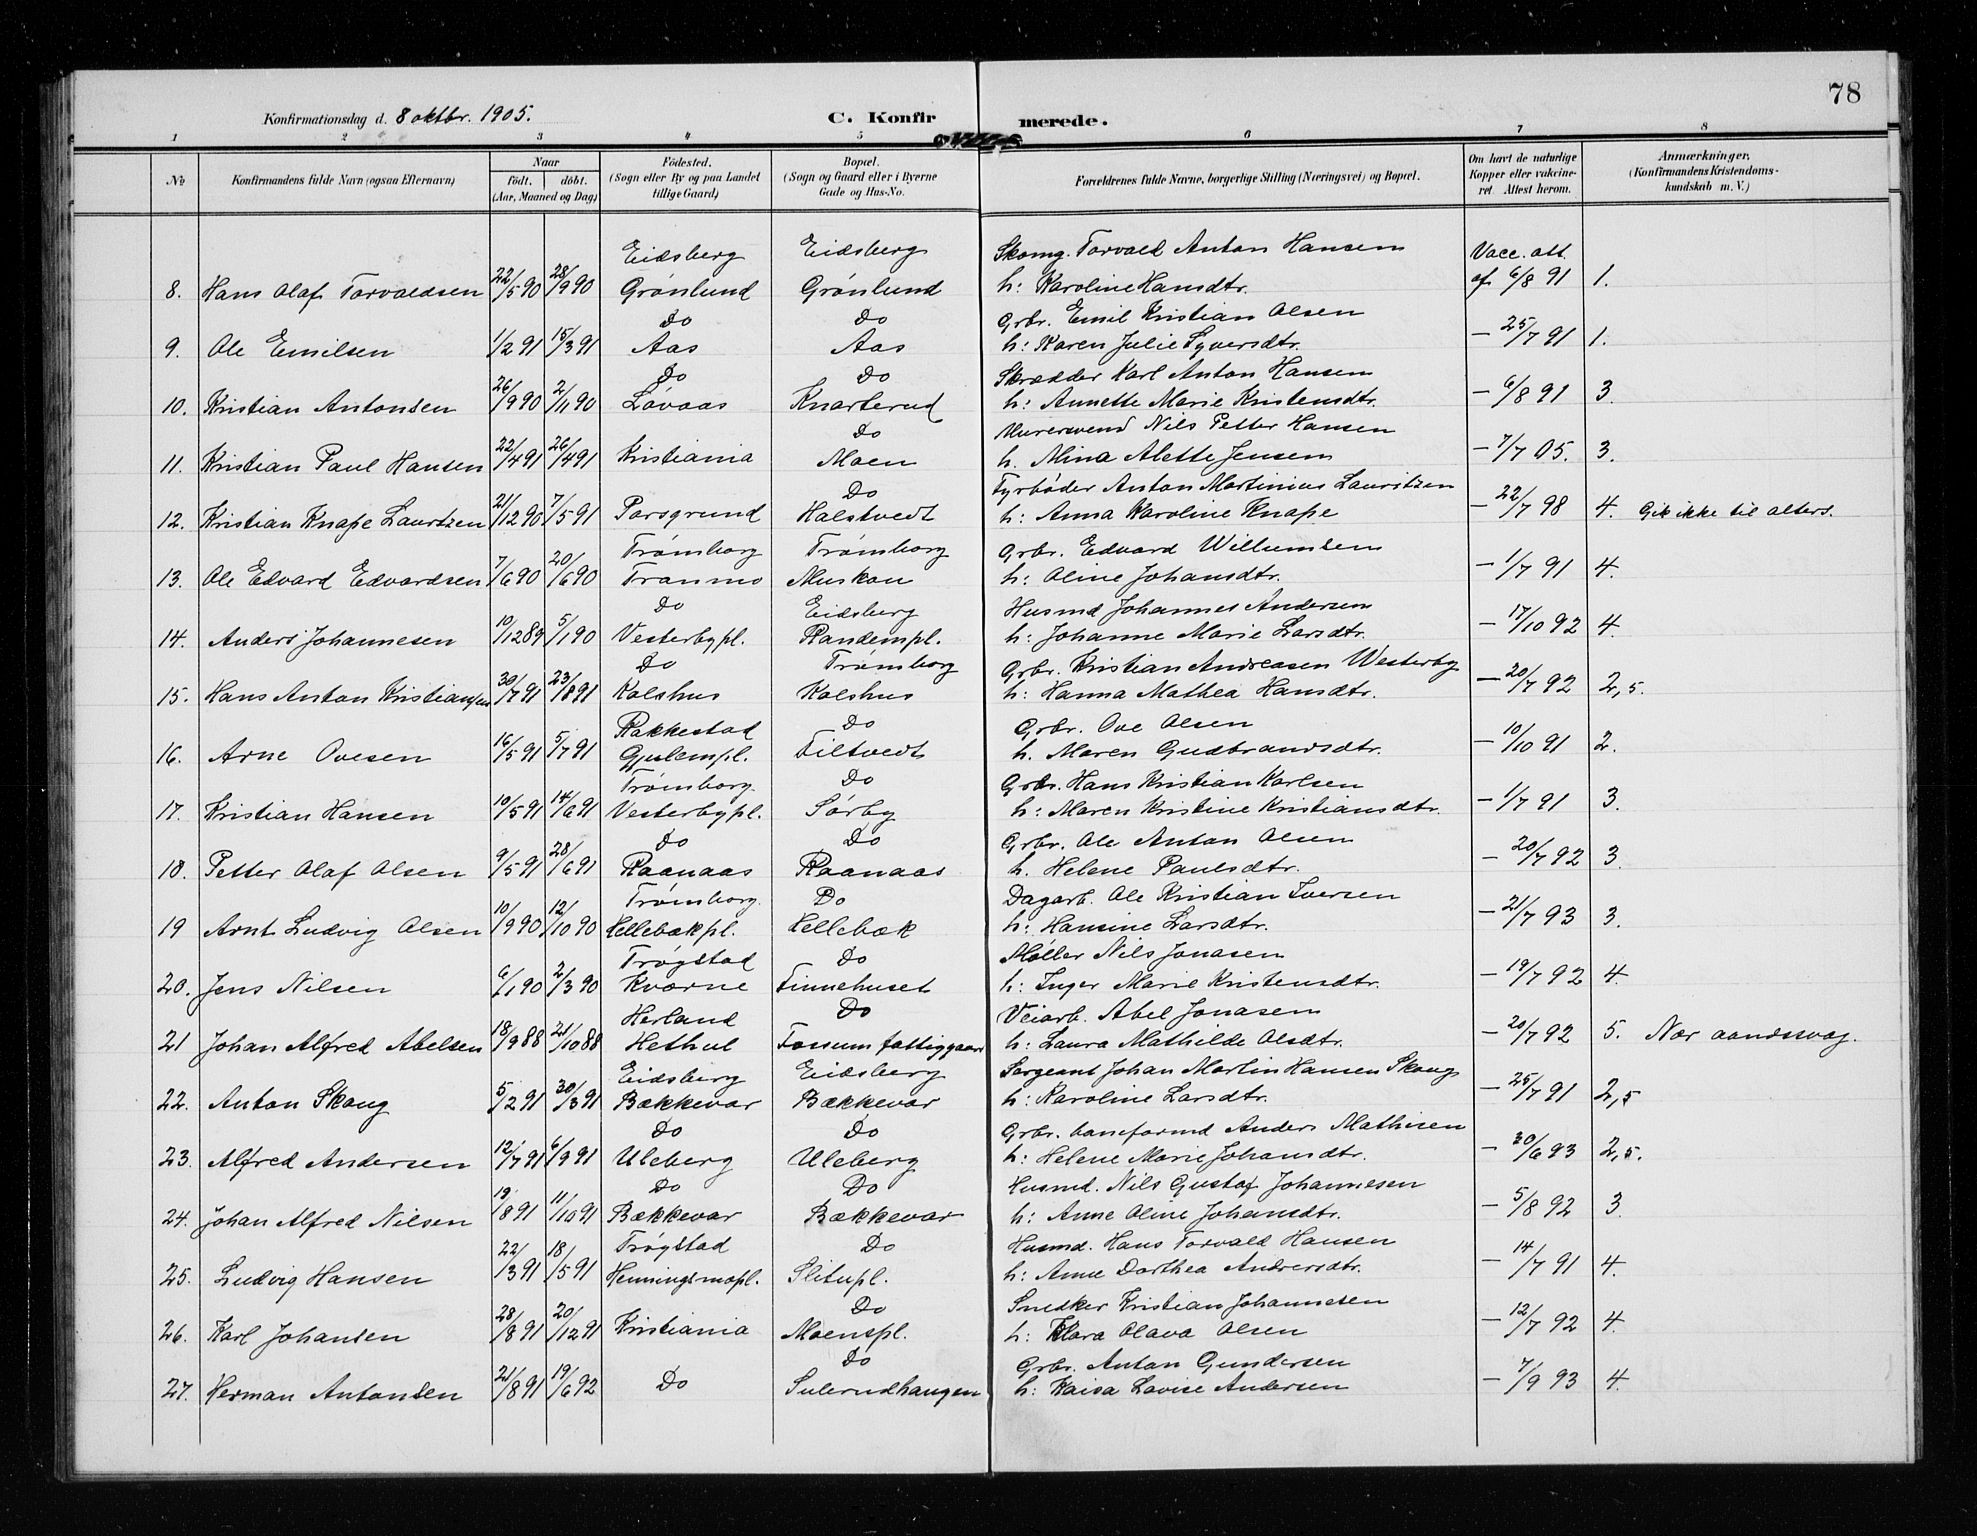 78
Konfirmationsdag d. 8 oktbr. 1905. C. Konfir merede.
1 2 3 4 5 6 7 8
No Konfirmandens fulde Navn (ogsaa Efternavn) Naar født. døbt. (Aar, Maaned og Dag) Fødested. (Sogn eller By og paa Landet tillige Gaard) Bopæl. (Sogn og Gaard eller i Byerne Gade og Hus-No. Forældrenes fulde Navne, borgerlige Stilling (Næringsvei) og Bopæl. Om havt de naturlige Kopper eller vakcineret. Attest herom. Anmærkninger. (Konfirmandens Kristendomskundskab m. V.)
Eidsberg Eidsberg Skomg. Torvald Anton Hansen Vacc. att.
8. Hans Olaf Torvaldsen 22/5 90 28/9 90 Grönlund Grönlund h: Karoline Hansdtr. af 6/8 91 1.
Do Do Grbr. Emil Kristian Olsen
9. Ole Emilsen 1/2 91 15/3 91 Aas Aas h: Karen Julie Syversdtr. – 25/7 91 1.
Do Do Skrædder Karl Anton Hansen
10. Kristian Antonsen 26/9 90 2/11 90 Lövaas Knarterud h: Annette Marie Kristensdtr. – 6/8 91 3.
Do Murersvend Nils Petter Hansen
11. Kristian Paul Hansen 22/4 91 26/4 91 Kristiania Moen h. Mina Alette Jensen – 7/7 05. 3.
Do Fyrbøder Anton Martinius Lauritzen
12. Kristian Knape Laurtzen 21/12 90 7/5 91 Porsgrund Halstvedt h: Anna Karoline Knape – 22/7 98 4. Gik ikke til alters.
Trömborg Trömborg Grbr. Edvard Willumsen
13. Ole Edvard Edvardsen 7/6 90 20/6 90 Tranmo Muskau h: Oline Johansdtr. – 1/7 91 4.
Do Eidsberg Husmd Johannes Andersen
14. Anders Johannesen 10/12 89 5/1 90 Vesterbypl. Randempl. h: Johanne Marie Larsdtr. – 17/10 92 4.
Do Trömborg Grbr. Kristian Andreasen Westerby
15. Hans Anton Kristiansen 30/7 91 23/8 91 Kolshus Kolshus h: Hanna Mathea Hansdtr. – 20/7 92 2,5.
Rakkestad Do Grbr. Ove Olsen
16. Arne Ovesen 16/5 91 5/7 91 Gjulempl. Tiltvedt h. Maren Gudbrandsdtr. – 10/10 91 2.
Trömborg. Do Grbr. Hans Kristian Karlsen
17. Kristian Hansen 10/5 91 14/6 91 Vesterbypl. Sörby h: Maren Kristine Kristiansdtr. – 1/7 91 3.
Do Do Grbr. Ole Anton Olsen
18. Petter Olaf Olsen 9/5 91 28/6 91 Raanaas Raanaas h. Helene Paulsdtr. – 20/7 92 3.
Trömborg. Do Dagarb. Ole Kristian Iversen
19 Arnt Ludvig Olsen 10/9 90 12/10 90 Hellebækpl. Hellebæk h: Hansine Larsdtr. – 21/7 93 3.
Trögstad Do Möller Nils Jonasen
20. Jens Nilsen 6/1 90 2/3 90 Kværne Finnehuset h: Inger Marie Kristensdtr. – 19/7 92 4.
Herland Do Veiarb. Abel Jonasen
21 Johan Alfred Abelsen 18/9 88 21/10 88 Hethul Fossum fattiggaard h: Laura Mathilde Olsdtr. – 20/7 92 5. Nær aandssvag.
Eidsberg Eidsberg Sergeant Johan Martin Hansen Skoug
22. Anton Skoug 5/2 91 30/3 91 Bækkevar Bækkevar h: Karoline Larsdtr. – 25/7 91 2,5
Do Do Grbr. baneformd Anders Mathisen
23. Alfred Andersen 12/7 91 6/9 91 Uleberg Uleberg h: Helene Marie Johansdtr. – 30/6 93 2,5.
Do Do Husmd. Nils Gustaf Johannesen
24. Johan Alfred Nilsen 19/8 91 11/10 91 Bækkevar Bækkevar h: Anne Oline Johansdtr. – 5/8 92 3.
Trögstad Do Husmd. Hans Torvald Hansen
25. Ludvig Hansen 22/3 91 18/5 91 Henningsmopl. Slitupl. h: Anne Dorthea Andersdtr. – 14/7 91 4.
Do Snedker Kristian Johannesen
26. Karl Johansen 28/8 91 20/12 91 Kristiania Moenspl. h: Klara Olava Olsen – 12/7 92 4.
Do Grbr. Anton Gundersen
27. Herman Antonsen 21/8 91 19/6 92 Do Sulerudhaugen h: Kaisa Lovise Andersen – 7/9 93 4.